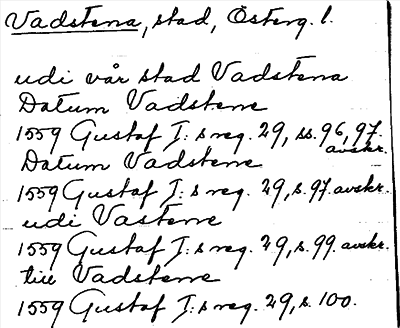 Vadstena, stad, Österg. l.
udi vår stad Vadstena
Datum Vadstene
1559 Gustaf I:s reg. 29, ss. 96, 97.
avskr.
Datum Vadstene
1559 Gustaf I:s reg. 29, s. 97. avskr.
udi Vastene
1559 Gustaf I:s reg. 29, s. 99. avskr.
till Vadstene
1559 Gustaf I:s reg. 29, s. 100.